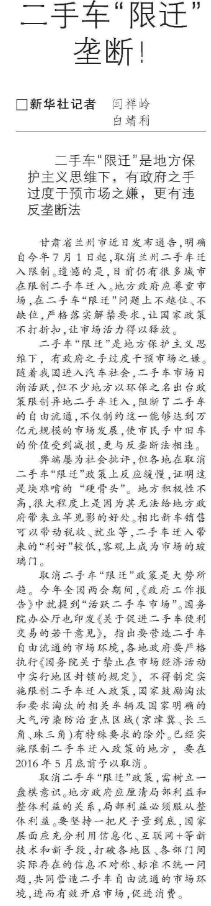 二手车“限迁”
垄断！
□新华社记者 闫祥岭
白靖利
二手车“限迁”是地方保
护主义思维下，有政府之手
过度干预市场之嫌，更有违
反垄断法
甘肃省兰州市近日发布通告，明确
自今年7月1日起，取消兰州二手车迁
入限制。遗憾的是，目前仍有很多城市
在限制二手车迁入。地方政府应尊重市
场，在二手车“限迁”问题上不越位、不
缺位，严格落实解禁要求，让国家政策
不打折扣，让市场活力得以释放。
二手车“限迁”是地方保护主义思
维下，有政府之手过度干预市场之嫌。
随着我国进入汽车社会，二手车市场日
渐活跃，但不少地方以环保之名出台政
策限制异地二手车迁入，阻断了二手车
的自由流通，不仅制约这一能够达到万
亿元规模的市场发展，使市民手中旧车
的价值受到减损，更与反垄断法相违。
弊端屡为社会批评，但各地在取消
二手车“限迁”政策上反应缓慢，证明这
是块难啃的“硬骨头”。地方积极性不
高，很大程度上是因为其无法给地方政
府带来立竿见影的好处。相比新车销售
可以带动税收、就业等，二手车迁入带
来的“利好”较低，客观上成为市场的玻
璃门。
取消二手车“限迁”政策是大势所
趋。今年全国两会期间，《政府工作报
告》中就提到“活跃二手车市场”。国务
院办公厅也印发《关于促进二手车便利
交易的若干意见》，指出要营造二手车
自由流通的市场环境，各地政府要严格
执行《国务院关于禁止在市场经济活动
中实行地区封锁的规定》，不得制定实
施限制二手车迁入政策，国家鼓励淘汰
和要求淘汰的相关车辆及国家明确的
大气污染防治重点区域（京津冀、长三
角、珠三角）有特殊要求的除外。已经实
施限制二手车迁入政策的地方，要在
2016年5月底前予以取消。
取消二手车“限迁”政策，需树立一
盘棋意识。地方政府应厘清局部利益和
整体利益的关系，局部利益必须服从整
体利益。要坚持一把尺子量到底，国家
层面应充分利用信息化、互联网+等新
技术和新手段，打破各地区、各部门间
实际存在的信息不对称、标准不统一问
题，共同营造二手车自由流通的市场环
境，进而有效开启市场，促进消费。